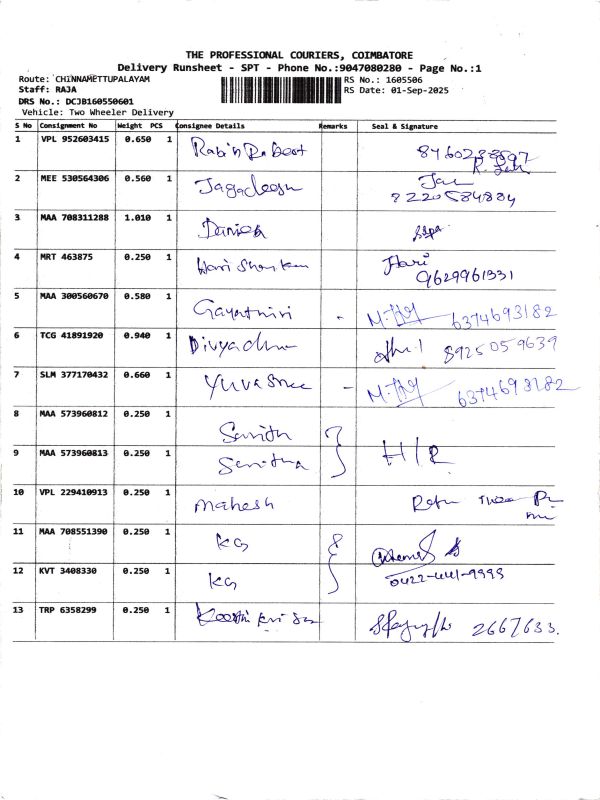 THE PROFESSIONAL COURIERS, COIMBATORE
Delivery Runsheet - SPT - Phone No.:9047080280 - Page No.:1
Route: CHINNAMETTUPALAYAM RS No.: 1605506
Staff: RAJA RS Date: 01-Sep-2025
DRS No.: DCJB160550601
Vehicle: Two Wheeler Delivery
S No Consignment No Weight PCS Consignee Details Remarks Seal & Signature
1 VPL 952603415 0.650 1 Robin Robert
2 MEE 530564306 0.560 1 Jagadeesh
8220584884
3 MAA 708311288 1.010 1
4 MRT 463875 0.250 1 Hari Shankar Hari
9629961331
5 MAA 300560670 0.580 1 Gayathiri - 6374693182
6 TCG 41891920 0.940 1 8925059639
7 SLM 377170432 0.660 1 Yuvasree - 6374693182
8 MAA 573960812 0.250 1
9 MAA 573960813 0.250 1 H/R
10 VPL 229410913 0.250 1 Mahesh
11 MAA 708551390 0.250 1 KG
12 KVT 3408330 0.250 1 KG 0422-441-9999
13 TRP 6358299 0.250 1 2667633.